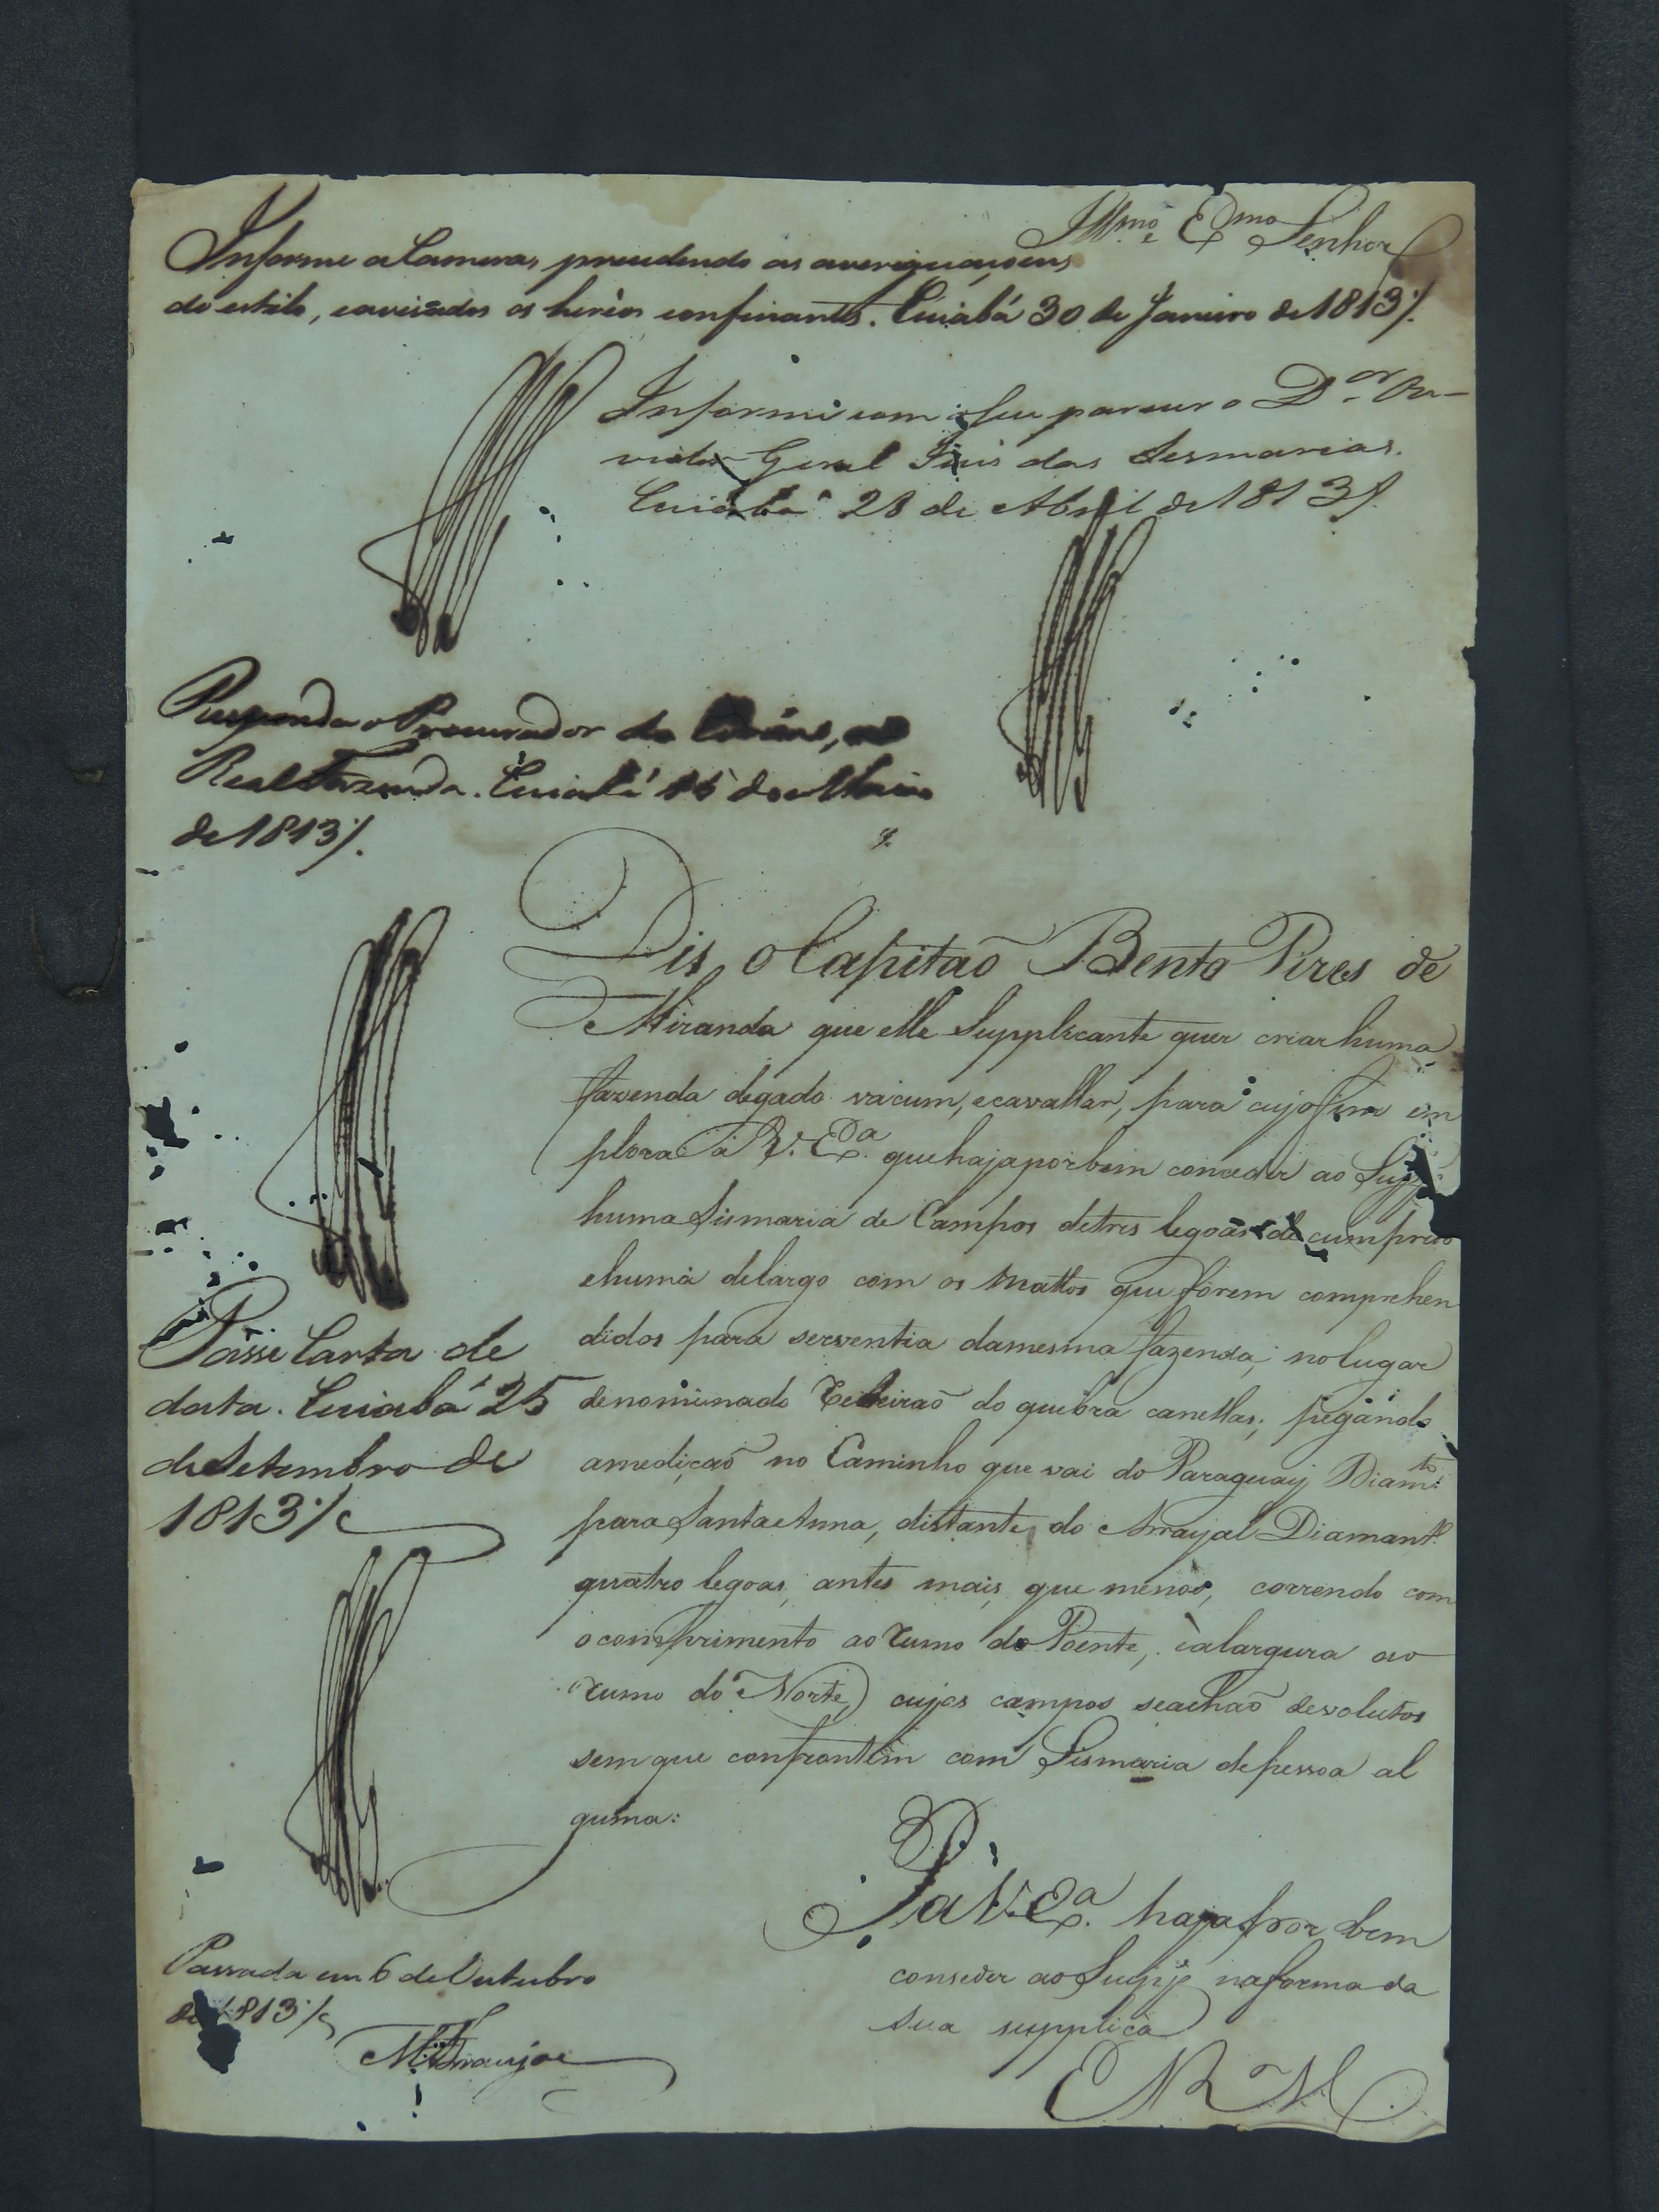 Illmo. e Exmo. Senhor
Informe a Camera, precedendo as averiguaçoens
do estilo, e avisados os heréos confinantes. Cuiabá 30 de Janeiro de 1813%.
Informe com o seu parecer o Dor. Ou-
vidor Geral Juis das Sesmarias.
Cuiabá 28 de Abril de 1813%.
Responda o Procurador da Corôa, e
Real Fazenda. Cuiabá de Maio
de 1813%.
Dis o Capitaõ Bento Pires de
Miranda que elle Supplicante quer criar huma
fazenda degado vacum, ecavallar, para cujo fim em
plora á V. Exa. quehajaporbem conceder ao Suppe
huma Sismaria de Campos detres legoas de cumprido
ehuma delargo com os Mattos que forem comprehen
didos para serventia damesma fazenda, nolugar
denominado Ribeiraõ do quebra canellas, pegando
amediçaõ no Caminho que vai do Paraguay Diamto.
para Santa Anna, distante do Arrayal Diamanto.
quatro legoas, antes mais, que menos, correndo com
o comprimento ao rumo do Poente, e alargura ao
rumo do Norte, cujos campos seachaõ devolutos
sem que confrontem com Sismaria depessoa al
guma:
Passe Carta de
data. Cuiabá 25
de Setembro de
1813%
P. a V. Exa. haja por bem
conseder ao Suppe na forma da
sua supplica
E R M
Passada em 6 de Outubro
de 1813%
Araujo